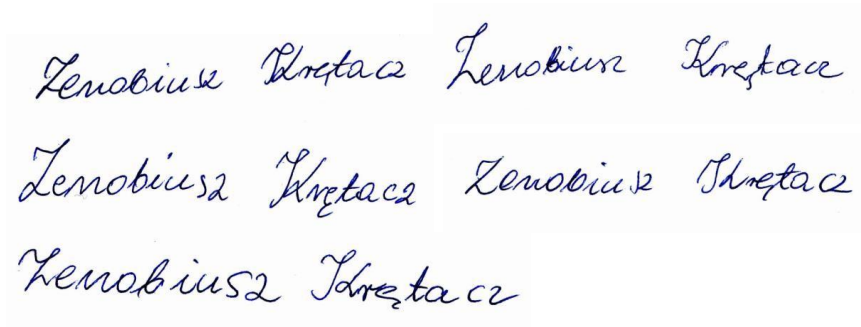 Zenobiusz Krętacz Zenobiusz Krętacz
Zenobiusz Krętacz Zenobiusz Krętacz
Zenobiusz Krętacz